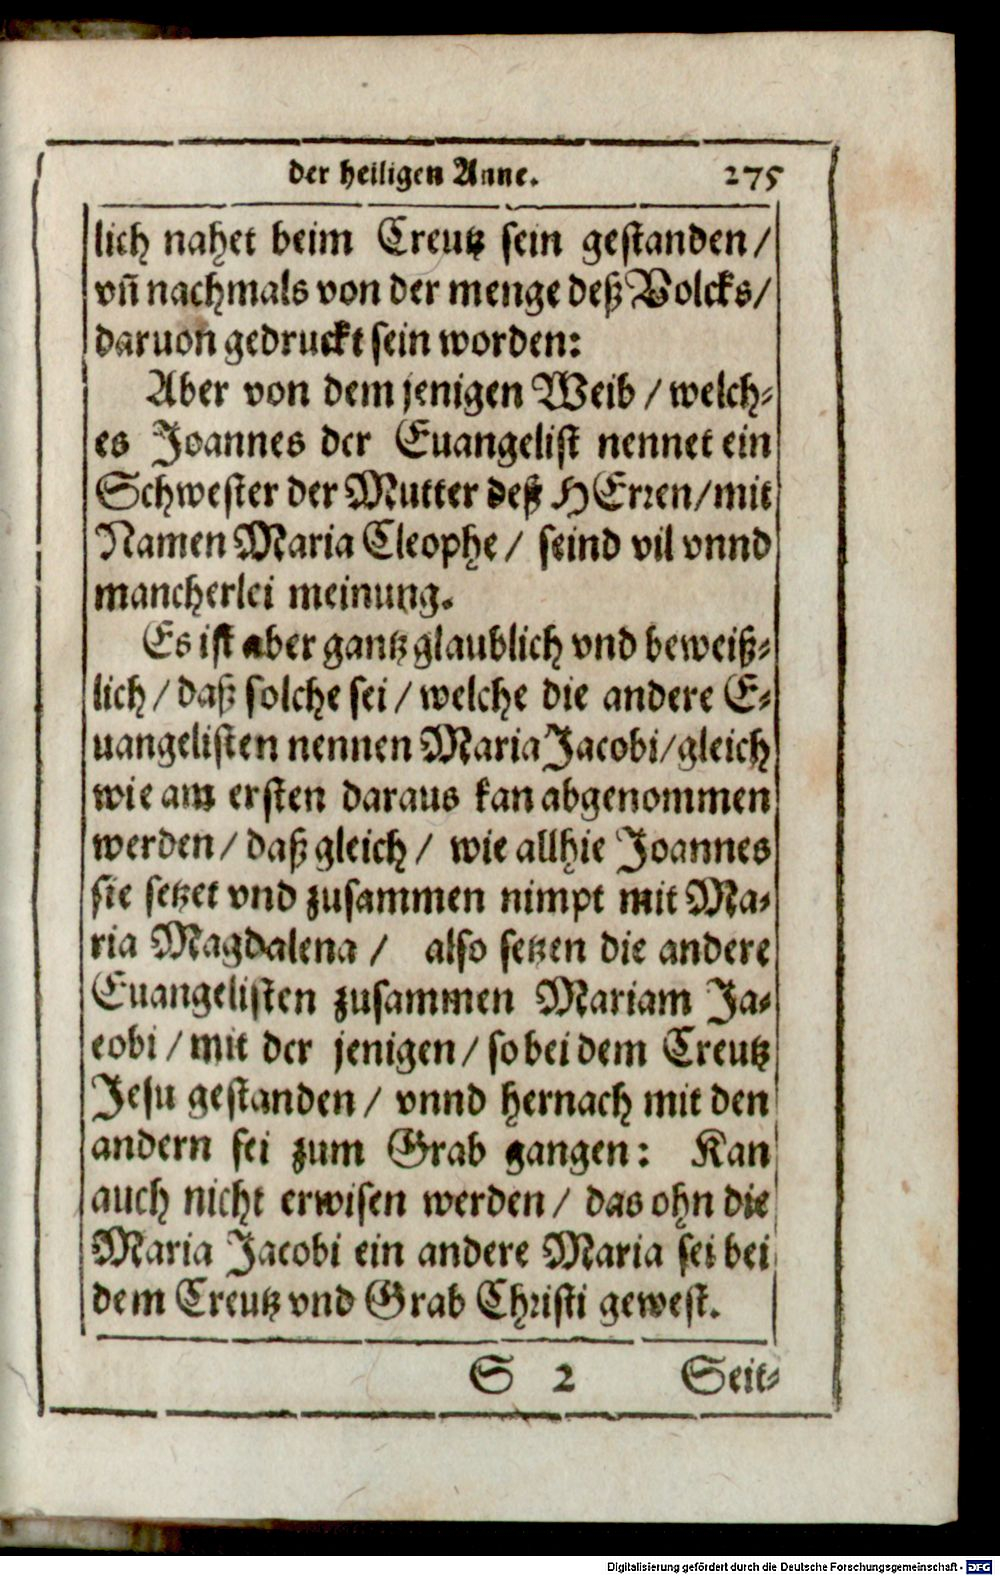 der heiligen Anne. 275
lich nahet beim Creutz sein gestanden/
vñ nachmals von der menge deß Volcks/
daruon gedruckt sein worden:
Aber von dem jenigen Weib / welch⸗
es Joannes der Euangelist nennet ein
Schwester der Mutter deß HErren/mit
Namen Maria Cleophe / seind vil vnnd
mancherlei meinung.
Es ist aber gantz glaublich vnd beweiß⸗
lich / daß solche sei / welche die andere E⸗
uangelisten nennen Maria Jacobi/gleich
wie am ersten daraus kan abgenommen
werden / daß gleich / wie allhie Joannes
sie setzet vnd zusammen nimpt mit Ma⸗
ria Magdalena / also setzen die andere
Euangelisten zusammen Mariam Ja⸗
eobi / mit der jenigen / so bei dem Creutz
Jesu gestanden / vnnd hernach mit den
andern sei zum Grab gangen: Kan
auch nicht erwisen werden / das ohn die
Maria Jacobi ein andere Maria sei bei
dem Creutz vnd Grab Christi gewest.
S 2 Seit⸗
Digitalisierung gefördert durch die Deutsche Forschungsgemeinschaft - DFG